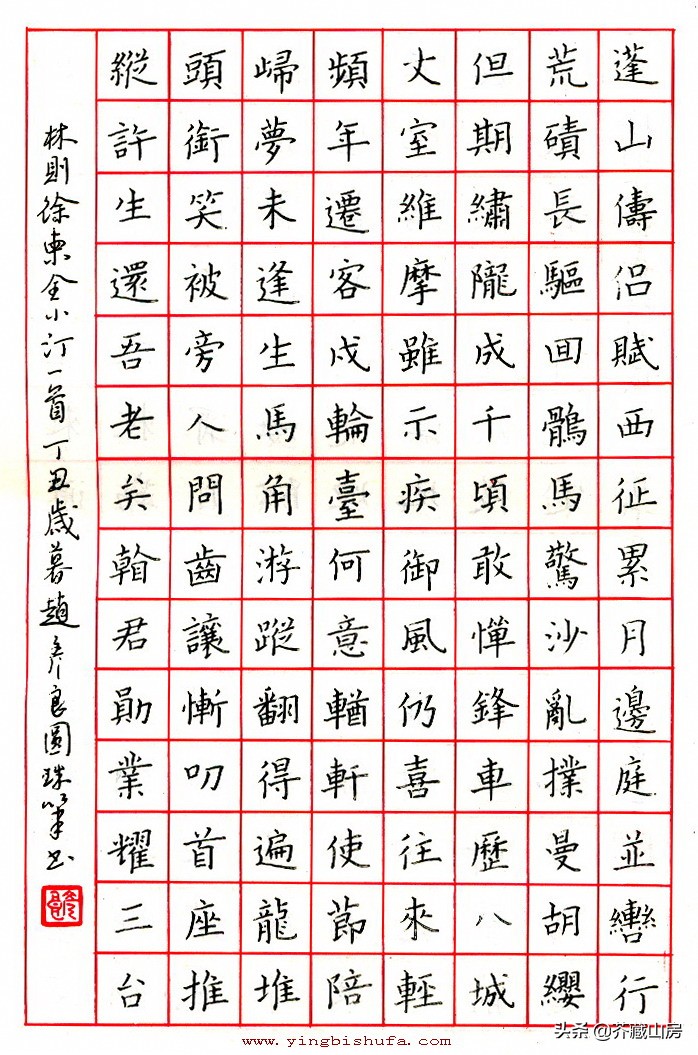 蓬山儔侶賦西征累月邊庭並轡行
荒磧長驅回鶻馬驚沙亂撲曼胡纓
但期繡隴成千頃敢憚鋒車歷八城
丈室維摩雖示疾御風仍喜往來輕
頻年遷客戍輪臺何意輶軒使節陪
歸夢未逢生馬角游蹤翻得遍龍堆
頭銜笑被旁人問齒讓慚叨首座推
縱許生還吾老矣看君勛業耀三台
林則徐柬全小汀一首 丁丑歲暮趙彥良圓珠筆書
www.yingbishufa.com
头条 @芥藏山房